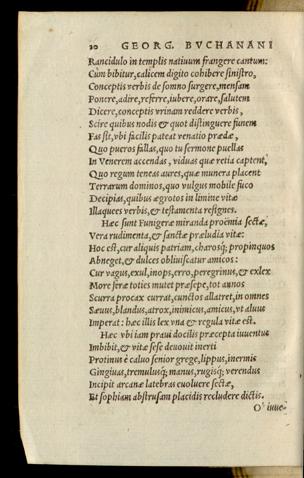 20 GEORG. BVCHANANI
Rancidulo in templis natiuum frangere cantum:
Cùm bibitur, calicem digito cohibere sinistro,
Conceptis verbis de somno surgere, mensam
Ponere, adire, referre, iubere, orare, salutem
Dicere, conceptis vrinam reddere verbis,
Scire quibus nodis & quot distinguere funem
Fas sit, vbi facilis pateat venatio prædæ,
Quo pueros fallas, quo tu sermone puellas
In Venerem accendas, viduas quæ retia captent,
Quo regum teneas aures, quæ munera placent
Terrarum dominos, quo vulgus mobile fuco
Decipias, quibus ægrotos in limine vitæ
Illaquees verbis, & testamenta resignes.
Hæc sunt Funigeræ miranda proœmia sectæ,
Vera rudimenta, & sanctæ præludia vitæ:
Hoc est, cur aliquis patriam, charosq; propinquos
Abneget, & dulces obliuiscatur amicos:
Cur vagus, exul, inops, erro, peregrinus, & exlex
More feræ toties mutet præsepe, tot annos
Scurra procax currat, cunctos allatret, in omnes
Sæuus, blandus, atrox, inimicus, amicus, vt aluus
Imperat: hæc illis lex vna & regula vitæ est.
Hæc vbi iam praui docilis præcepta iuuentus
Imbibit, & vitæ sese deuouit inerti
Protinus è caluo senior grege, lippus, inermis
Gingiuas, tremulusq; manus, rugisq; verendus
Incipit arcanæ latebras euoluere sectæ,
Et sophiam abstrusam placidis recludere dictis.
O' iuue-